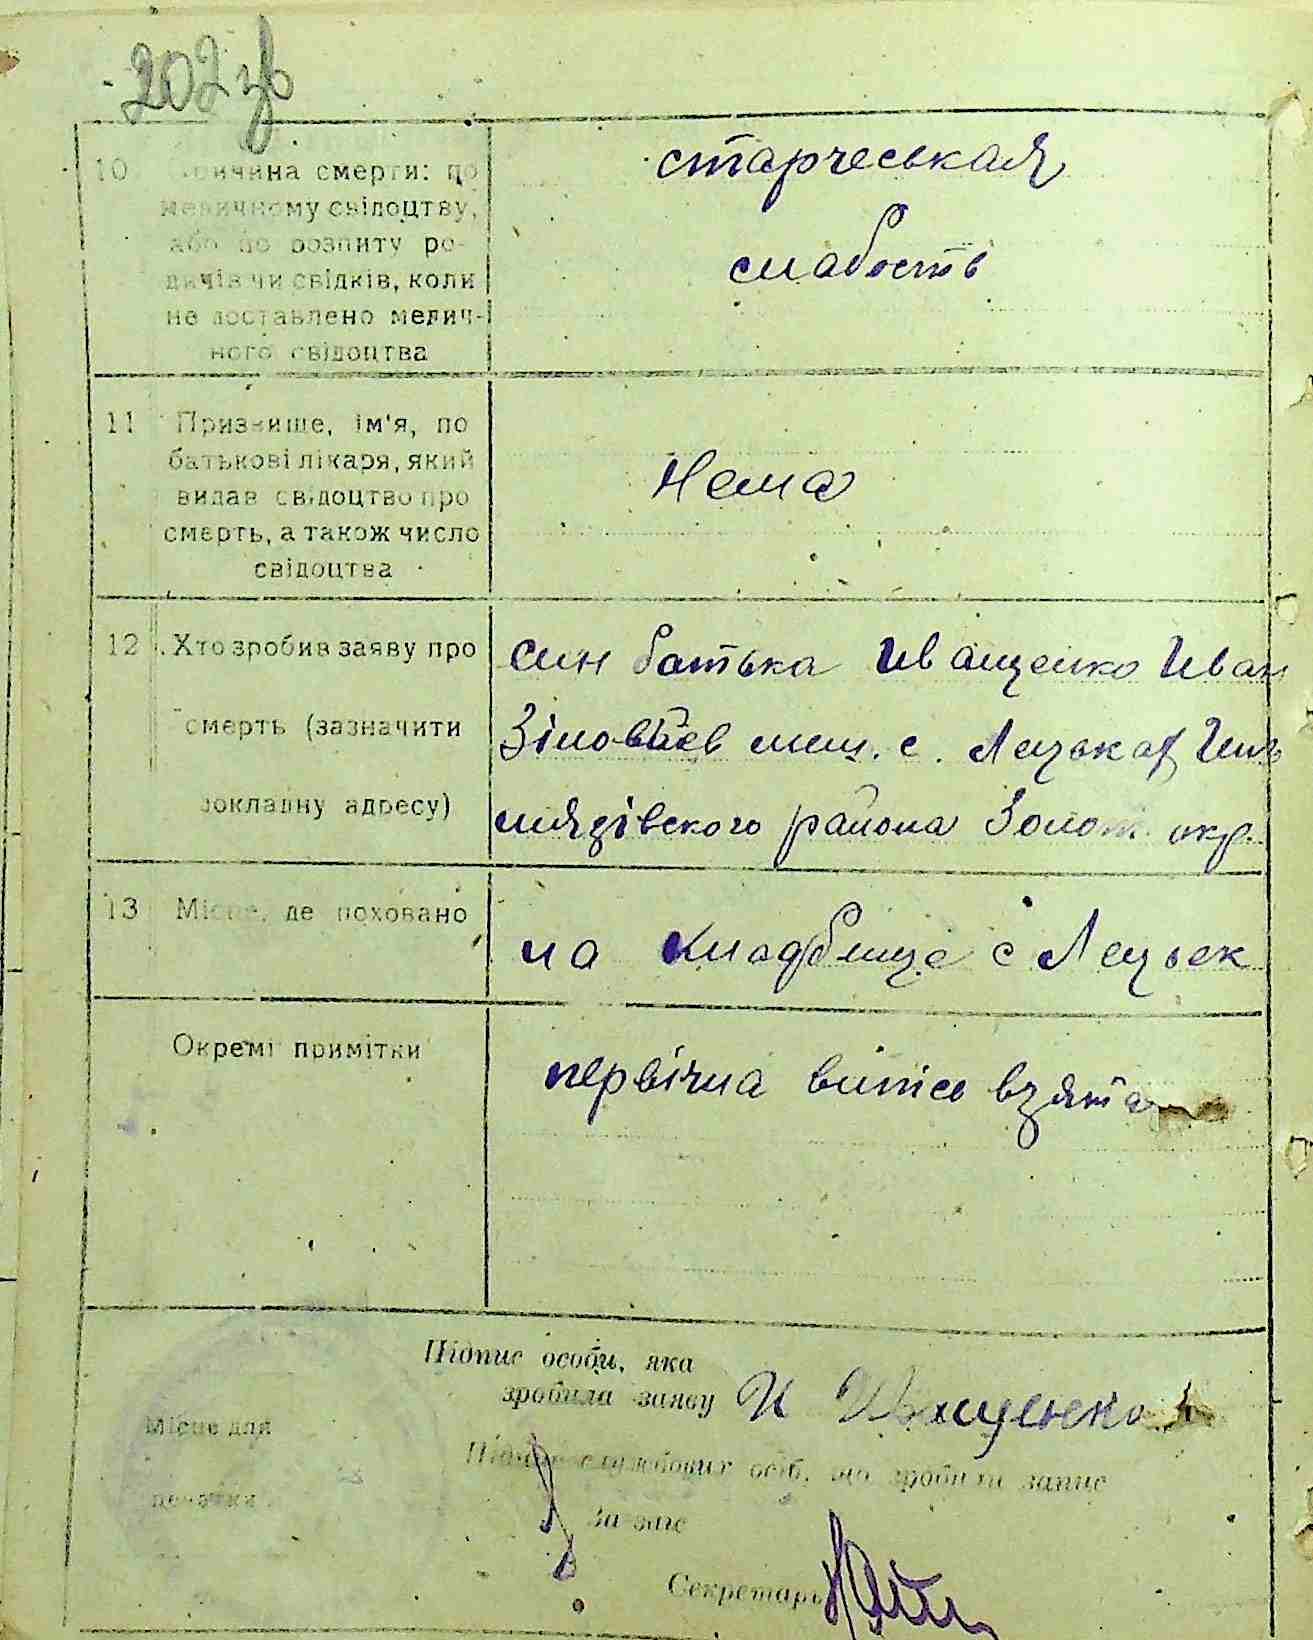 202 зв
10 Причина смерти: по
медичному свідоцтву,
або по розпиту ро-
дичів чи свідків, коли
не доставлено медич-
ного свідоцтва
старчеськая
слабость
11 Прізвище, ім'я, по
батькові лікаря, який
видав свідоцтво про
смерть, а також число
свідоцтва
Нема
12 Хто зробив заяву про
смерть (зазначити
докладну адресу)
син батька Иващенко Иван
меш. с.
района Золот. окр.
13 Місце, де поховано
на кладбище с Лецьк
Окремі примітки
первічна випись взята
Підпис особи, яка
зробила заяву И Иващенко
Місце для
печатки
Підписи службових осіб, що зробили запис
За загс
Секретарь